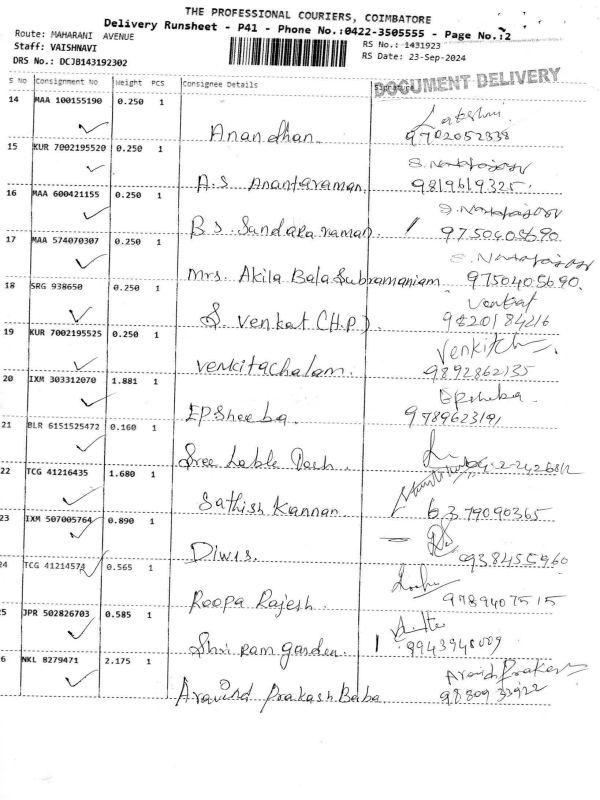 THE PROFESSIONAL COURIERS, COIMBATORE
Delivery Runsheet - P41 - Phone No.:0422-3505555 - Page No.:2
Route: MAHARANI AVENUE
Staff: VAISHNAVI
DRS No.: DCJB143192302
RS No.: 1431923
RS Date: 23-Sep-2024
DOCUMENT DELIVERY
S No Consignment No Weight PCS Consignee Details Signature
14 MAA 100155190 0.250 1
Anandhan.
15 KUR 7002195520 0.250 1
A.S. Anantaraman. 9819619325.
16 MAA 600421155 0.250 1
B.S. Sandararaman.
17 MAA 574070307 0.250 1
Mrs. Akila Bala Subramaniam 9750405690.
18 SRG 938650 0.250 1 Venkat
S venkat (H.P)
19 KUR 7002195525 0.250 1
venkitachalam. 9892862135
20 IXM 303312070 1.881 1
EPSheeba.
21 BLR 6151525472 0.160 1
Sree Lable
22 TCG 41216435 1.680 1
Sathish Kannan
23 IXM 507005764 0.890 1
Diwis.
24 TCG 41214574 0.565 1
Roopa Rajesh. 9789407515
25 JPR 502826703 0.585 1
Shri ram garden.
26 NKL 8279471 2.175 1
Aravind Prakash Baba